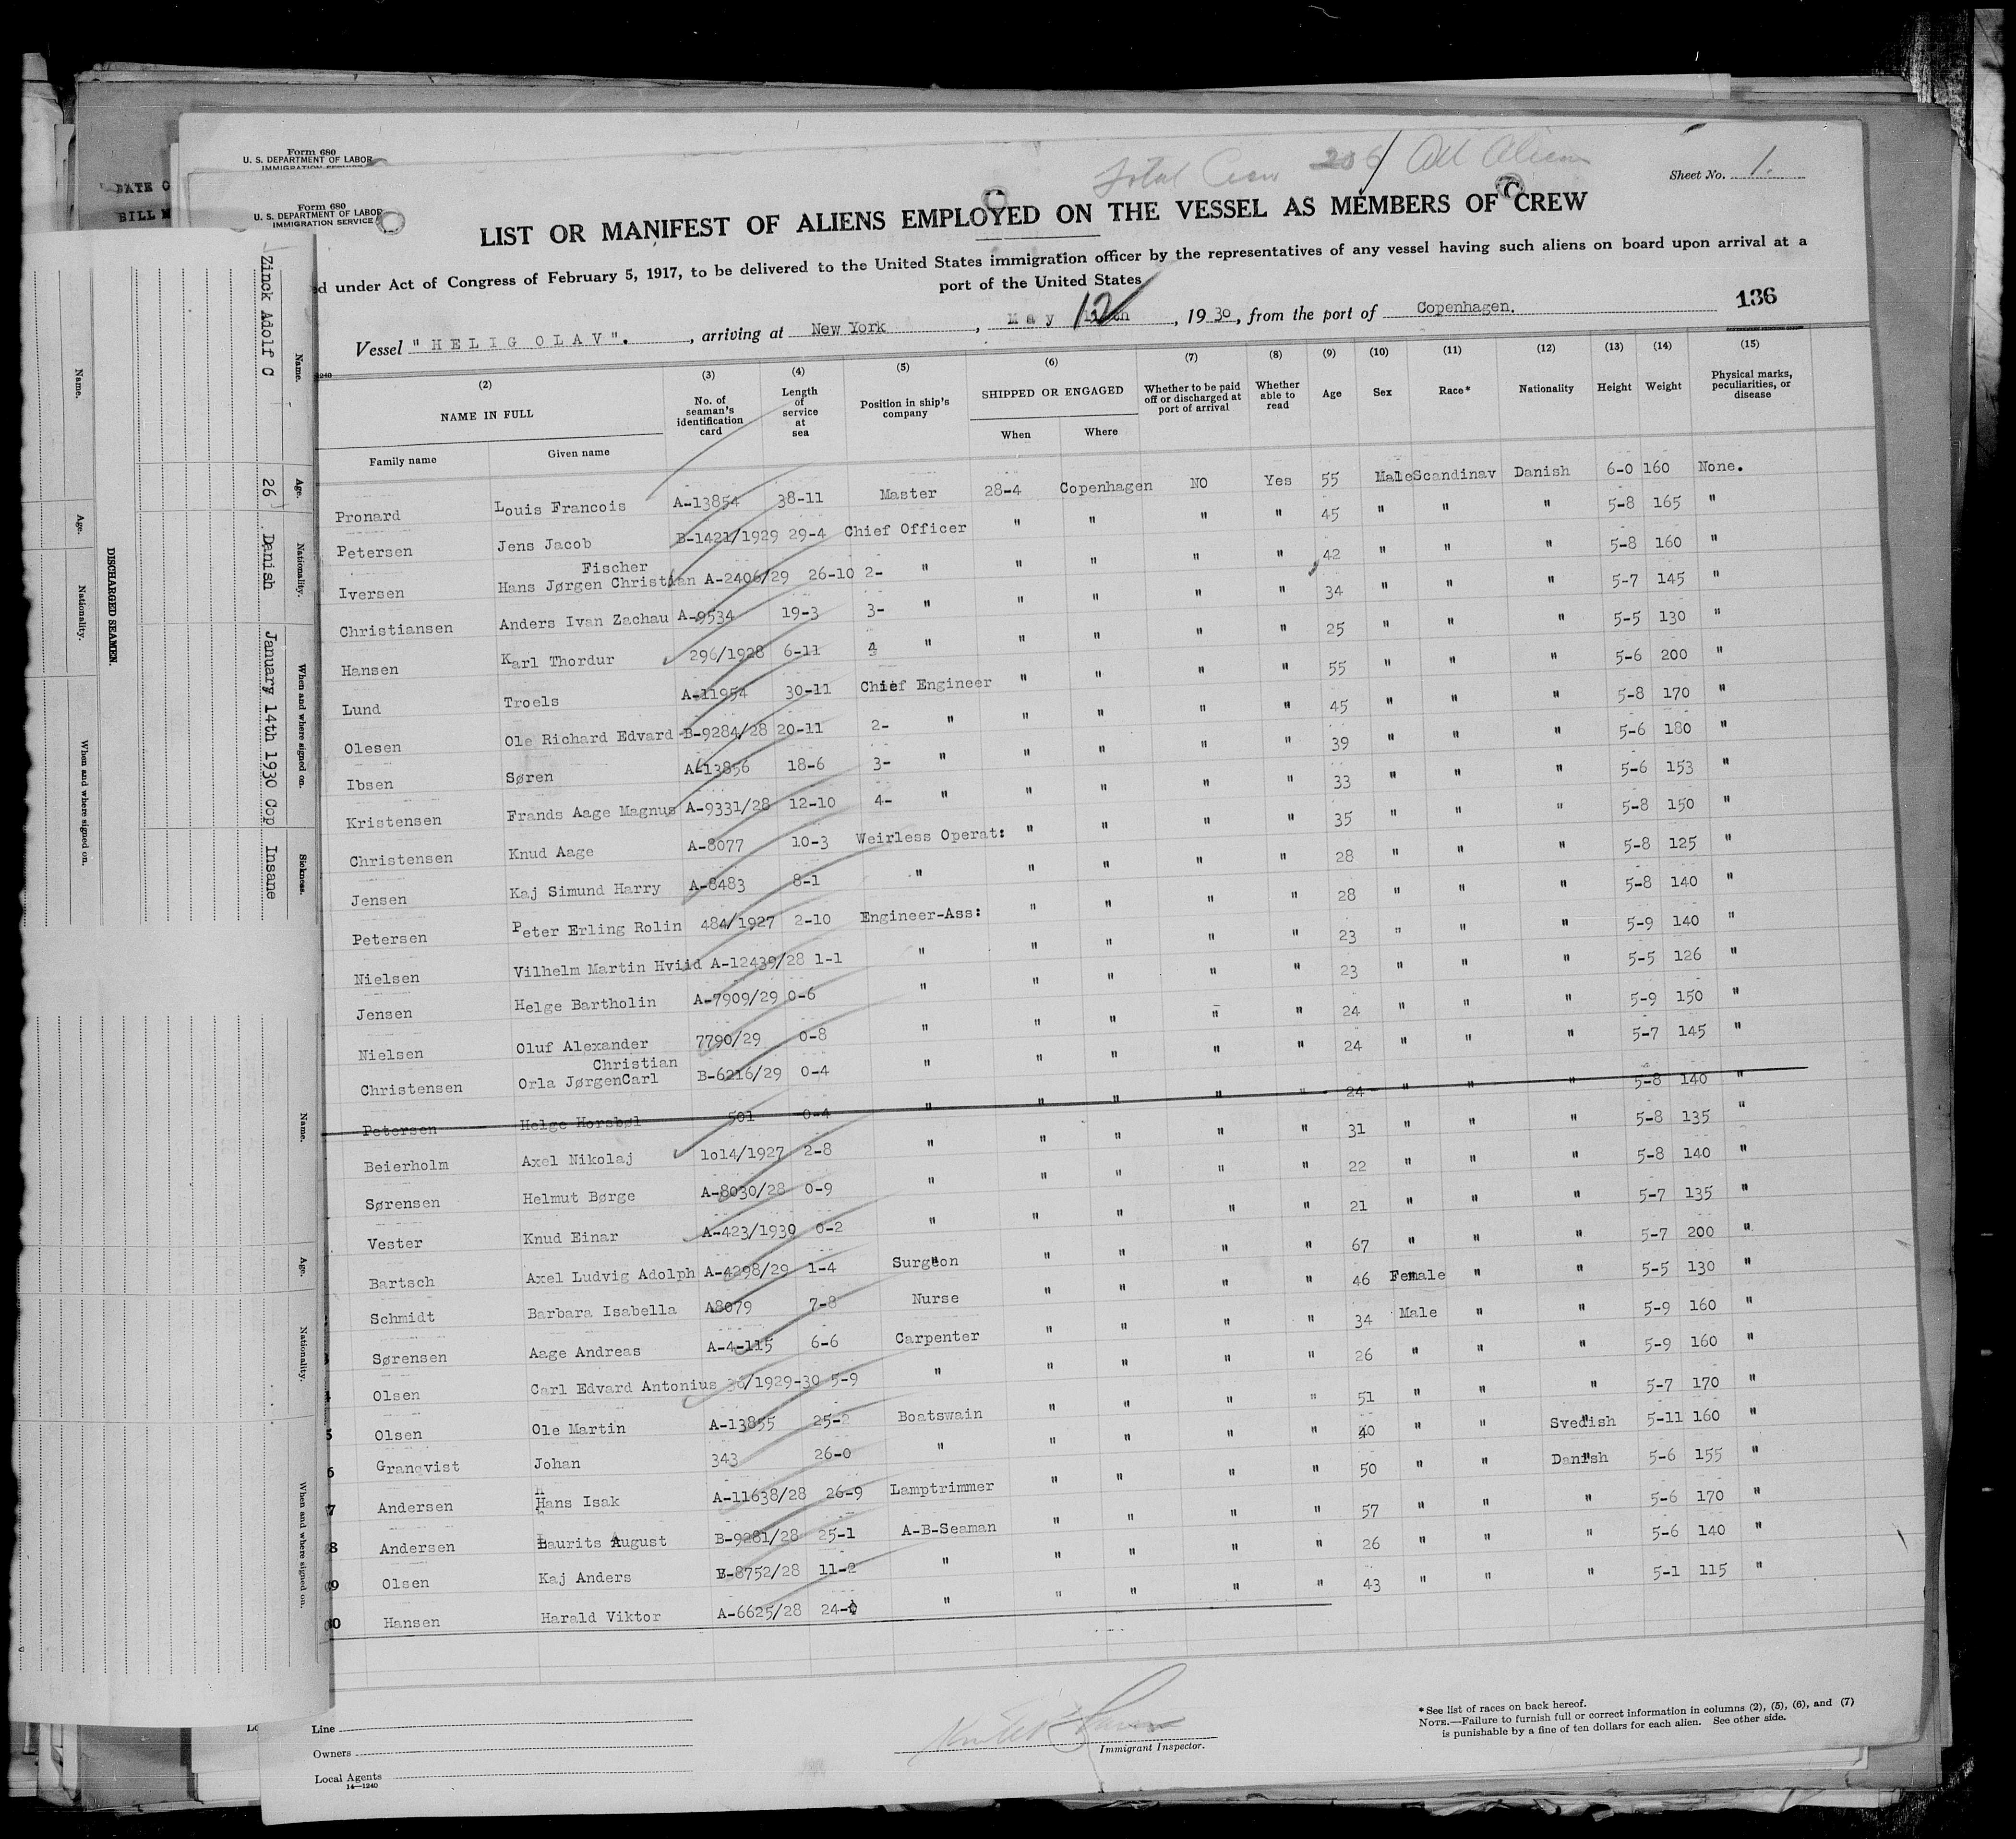 Form 680
U. S. DEPARTMENT OF LABOR
IMMIGRATION SERVICE
DATE O
BILL M
Form 680
U. S. DEPARTMENT OF LABOR
IMMIGRATION SERVICE
Total Crew 206 All Aliens
Sheet No. 1.
LIST OR MANIFEST OF ALIENS EMPLOYED ON THE VESSEL AS MEMBERS OF CREW
d under Act of Congress of February 5, 1917, to be delivered to the United States immigration officer by the representatives of any vessel having such aliens on board upon arrival at a
port of the United States
136
Vessel "HELIG OLAV". , arriving at New York , May 12 th , 1930, from the port of Copenhagen.
(2) (3) (4) (5) (6) (7) (8) (9) (10) (11) (12) (13) (14) (15)
NAME IN FULL No. of seaman's identification card Length of service at sea Position in ship's company SHIPPED OR ENGAGED Whether to be paid off or discharged at port of arrival Whether able to read Age Sex Race* Nationality Height Weight Physical marks, peculiarities, or disease
Family name Given name When Where
Pronard Louis Francois A-13854 38-11 Master 28-4 Copenhagen NO Yes 55 Male Scandinav Danish 6-0 160 None.
Petersen Jens Jacob B-1421/1929 29-4 Chief Officer " " " " 45 " " " 5-8 165 "
Fischer
Iversen Hans Jørgen Christian A-2406/29 26-10 2- " " " " " 42 " " " 5-8 160 "
Christiansen Anders Ivan Zachau A-9534 19-3 3- " " " " " 34 " " " 5-7 145 "
Hansen Karl Thordur 296/1928 6-11 4 " " " " " 25 " " " 5-5 130 "
Lund Troels A-11954 30-11 Chief Engineer " " " " 55 " " " 5-6 200 "
Olesen Ole Richard Edvard B-9284/28 20-11 2- " " " " " 45 " " " 5-8 170 "
Ibsen Søren A-13856 18-6 3- " " " " " 39 " " " 5-6 180 "
Kristensen Frands Aage Magnus A-9331/28 12-10 4- " " " " " 33 " " " 5-6 153 "
Christensen Knud Aage A-8077 10-3 Weirless Operat: " " " " 35 " " " 5-8 150 "
Jensen Kaj Simund Harry A-8483 8-1 " " " " " 28 " " " 5-8 125 "
Petersen Peter Erling Rolin 484/1927 2-10 Engineer-Ass: " " " " 28 " " " 5-8 140 "
Nielsen Vilhelm Martin Hviid A-12439/28 1-1 " " " " " 23 " " " 5-9 140 "
Jensen Helge Bartholin A-7909/29 0-6 " " " " " 23 " " " 5-5 126 "
Nielsen Oluf Alexander 7790/29 0-8 " " " " " 24 " " " 5-9 150 "
Christian
Christensen Orla JørgenCarl B-6216/29 0-4 " " " " " 24 " " " 5-7 145 "
Petersen Helge Horsbøl 501 0-4 " " " " " 24 " " " 5-8 140 "
Beierholm Axel Nikolaj 1o14/1927 2-8 " " " " " 31 " " " 5-8 135 "
Sørensen Helmut Børge A-8030/28 0-9 " " " " " 22 " " " 5-8 140 "
Vester Knud Einar A-423/1930 0-2 " " " " " 21 " " " 5-7 135 "
Bartsch Axel Ludvig Adolph A-4298/29 1-4 Surgeon " " " " 67 " " " 5-7 200 "
Schmidt Barbara Isabella A8079 7-8 Nurse " " " " 46 Female " " 5-5 130 "
Sørensen Aage Andreas A-4-115 6-6 Carpenter " " " " 34 Male " " 5-9 160 "
Olsen Carl Edvard Antonius 36/1929-30 5-9 " " " " " 26 " " " 5-9 160 "
5 Olsen Ole Martin A-13855 25-2 Boatswain " " " " 51 " " " 5-7 170 "
6 Granqvist Johan 343 26-0 " " " " " 40 " " Svedish 5-11 160 "
7 Andersen Hans Isak A-11638/28 26-9 Lamptrimmer " " " " 50 " " Danish 5-6 155 "
8 Andersen Laurits August B-9281/28 25-1 A-B-Seaman " " " " 57 " " " 5-6 170 "
9 Olsen Kaj Anders E-8752/28 11-2 " " " " " 26 " " " 5-6 140 "
30 Hansen Harald Viktor A-6625/28 24-0 " " " " " 43 " " " 5-1 115 "
Line
Owners
Local Agents
14—1240
Immigrant Inspector.
*See list of races on back hereof.
NOTE.—Failure to furnish full or correct information in columns (2), (5), (6), and (7)
is punishable by a fine of ten dollars for each alien. See other side.
DISCHARGED SEAMEN.
Name. Age. Nationality. When and where signed on.
Name. Age. Nationality. When and where signed on. Sickness.
Zinck Adolf C 26 Danish January 14th 1930 Cop Insane
Name. Age. Nationality. When and where signed on.